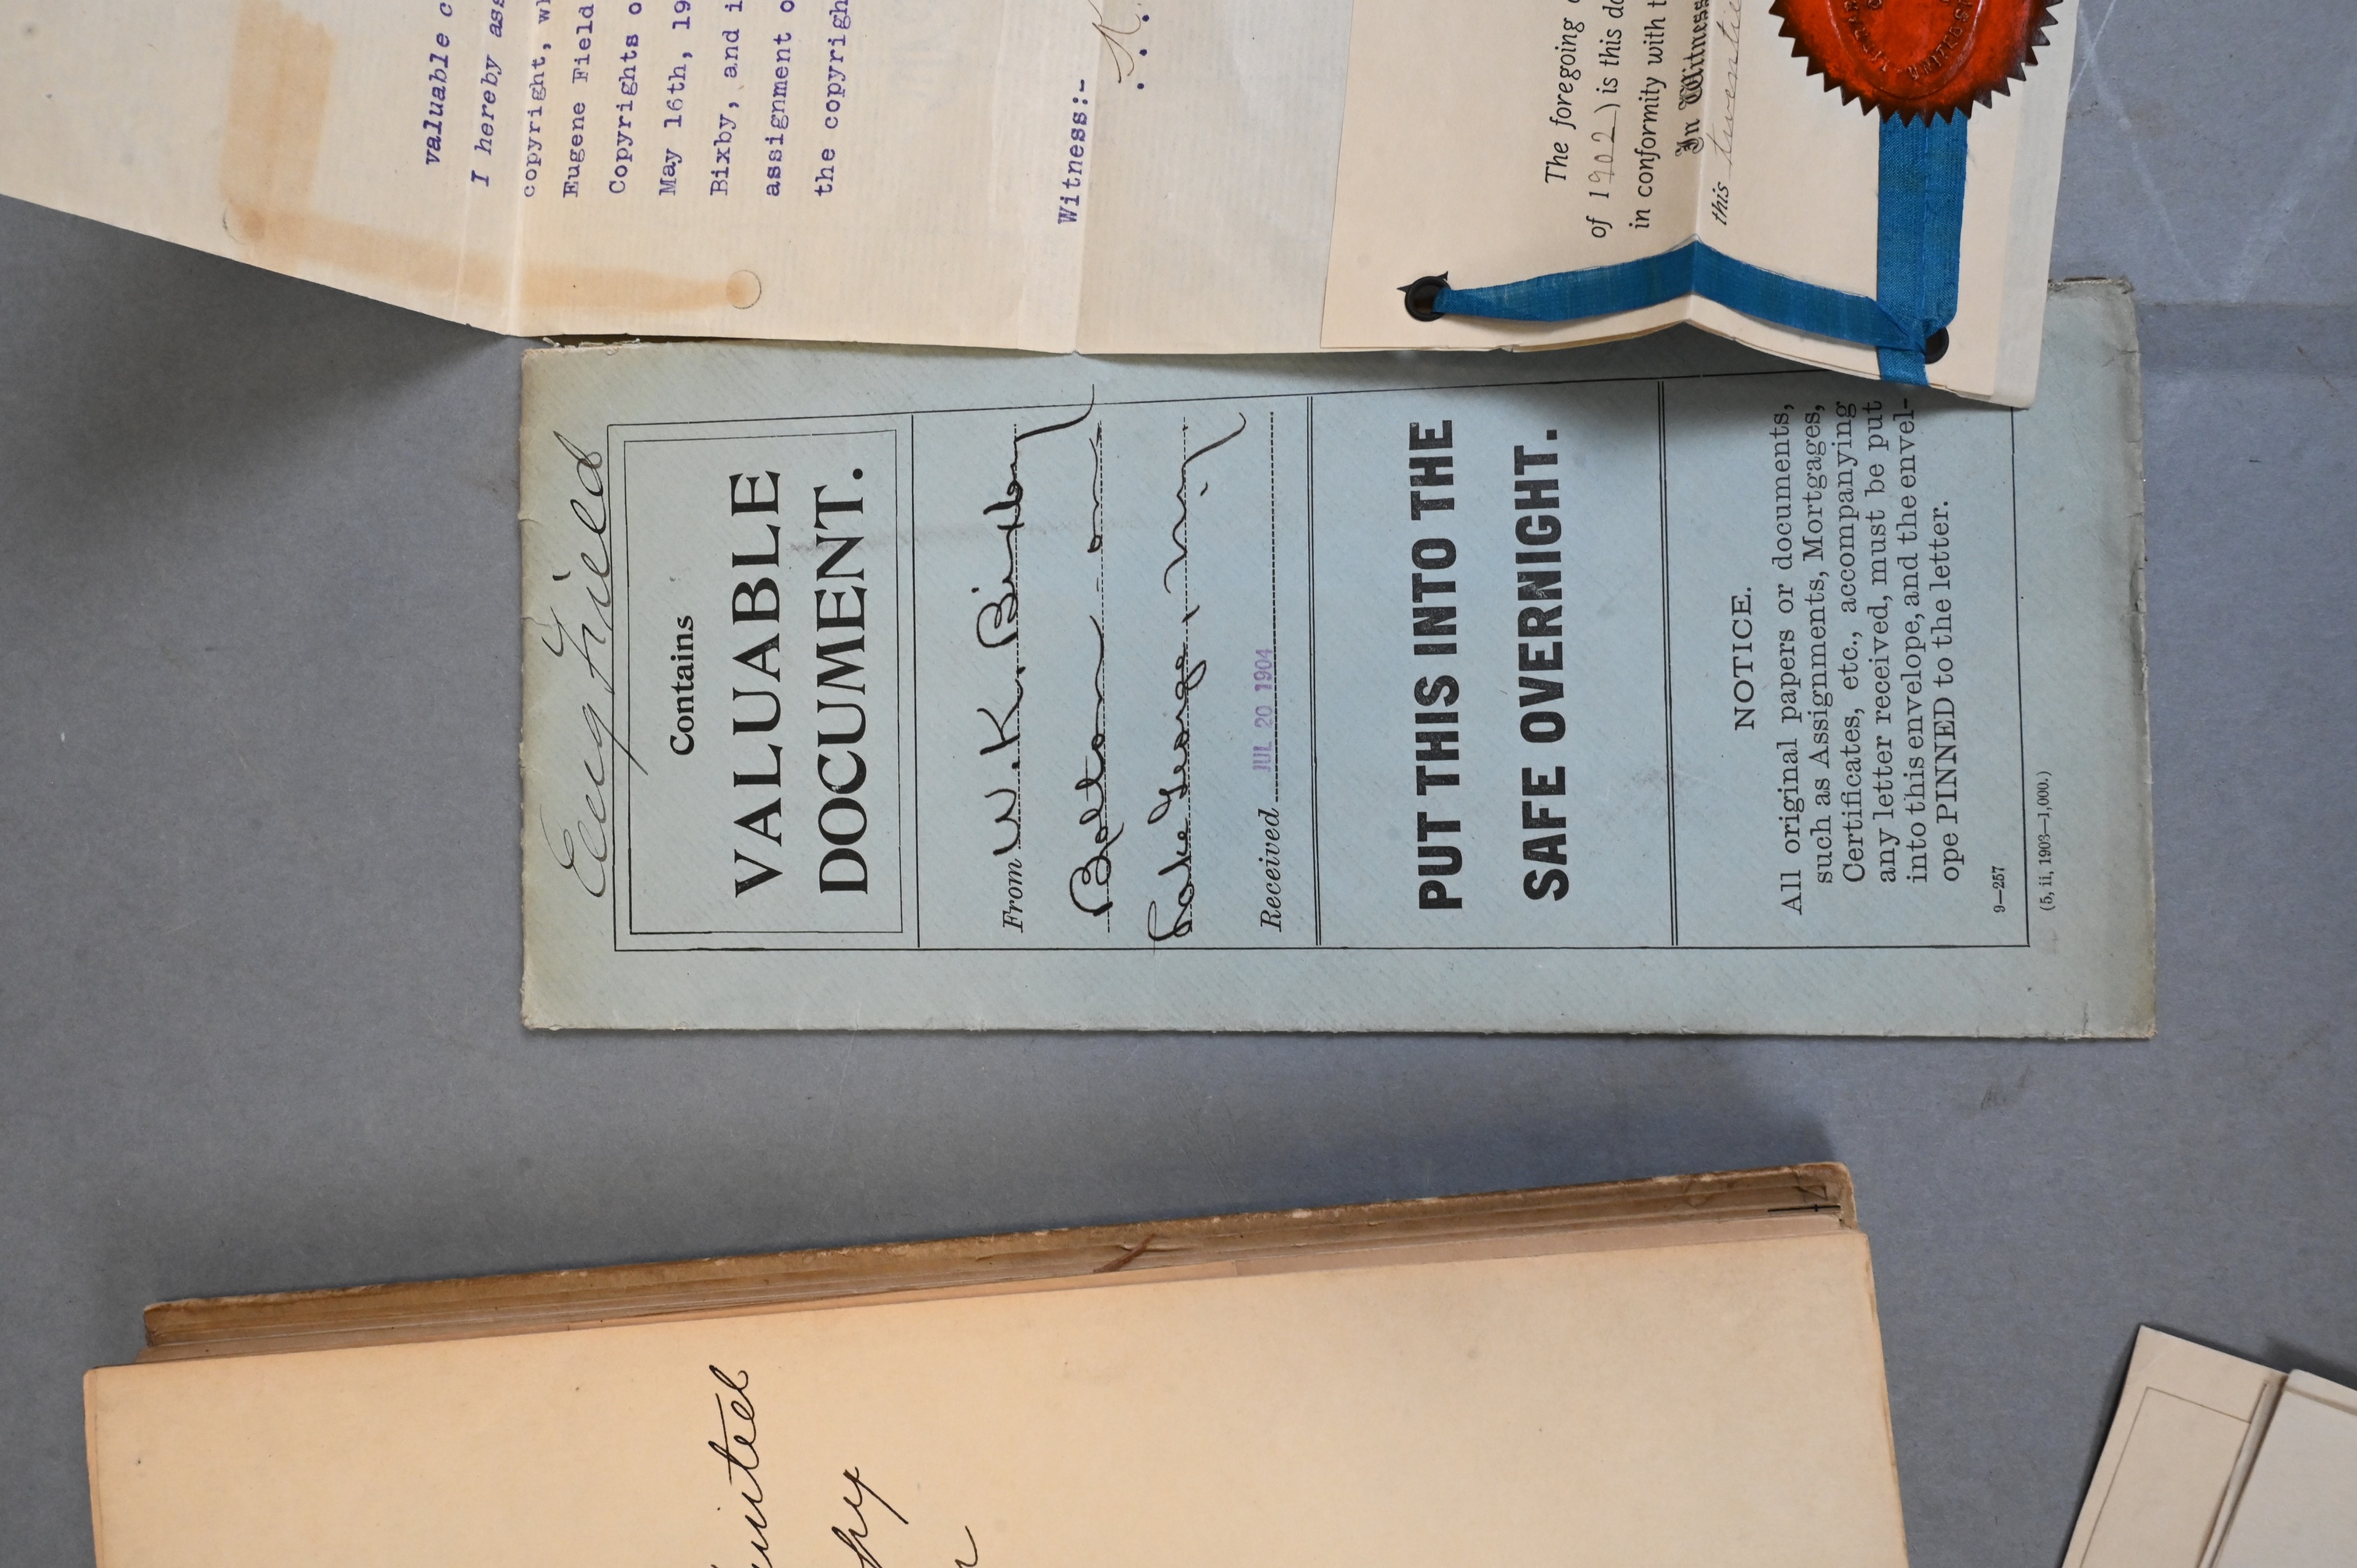 valuable c
I hereby ass
copyright, wh
Eugene Field
Copyrights o
May 16th, 19
Bixby, and i
assignment o
the copyrigh
Witness:-
The foregoing
of 1902) is this
in conformity with t
In Witness
this twentie
Eug Field
Contains
VALUABLE
DOCUMENT.
From W. K. Bixby
Bolton
Lake George N.Y.
Received JUL 20 1904
PUT THIS INTO THE
SAFE OVERNIGHT.
NOTICE.
All original papers or documents,
such as Assignments, Mortgages,
Certificates, etc., accompanying
any letter received, must be put
into this envelope, and the envel-
ope PINNED to the letter.
9—257
(5, ii, 1903—1,000.)